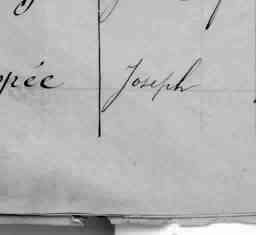 pée Joseph